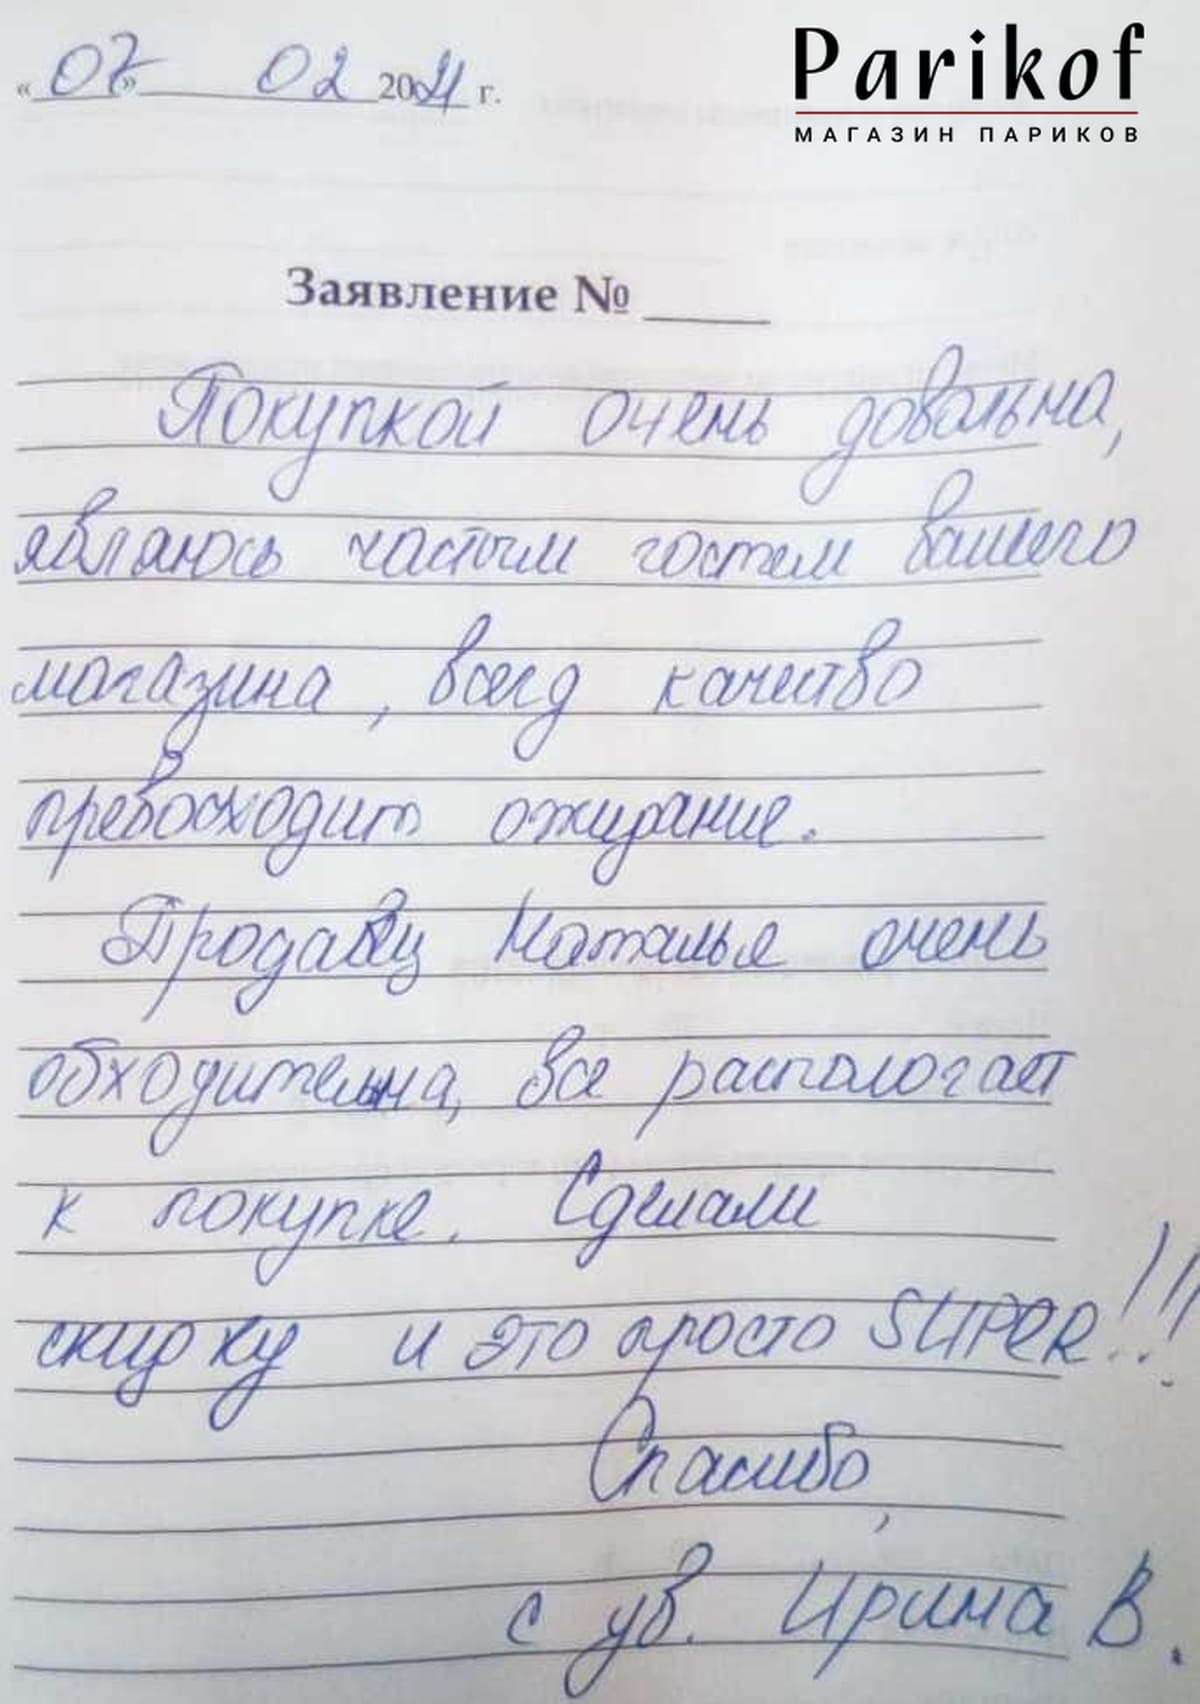 Parikof
МАГАЗИН ПАРИКОВ
«07» 02 2021 г.
Заявление №
Покупкой очень довольна,
являюсь частым гостем вашего
магазина, всегд качество
превосходит ожидание.
Продавец Наталья очень
обходительна, все распологает
к покупке. Сделали
скидку и это просто SUPER!!!
Спасибо,
с ув. Ирина В.